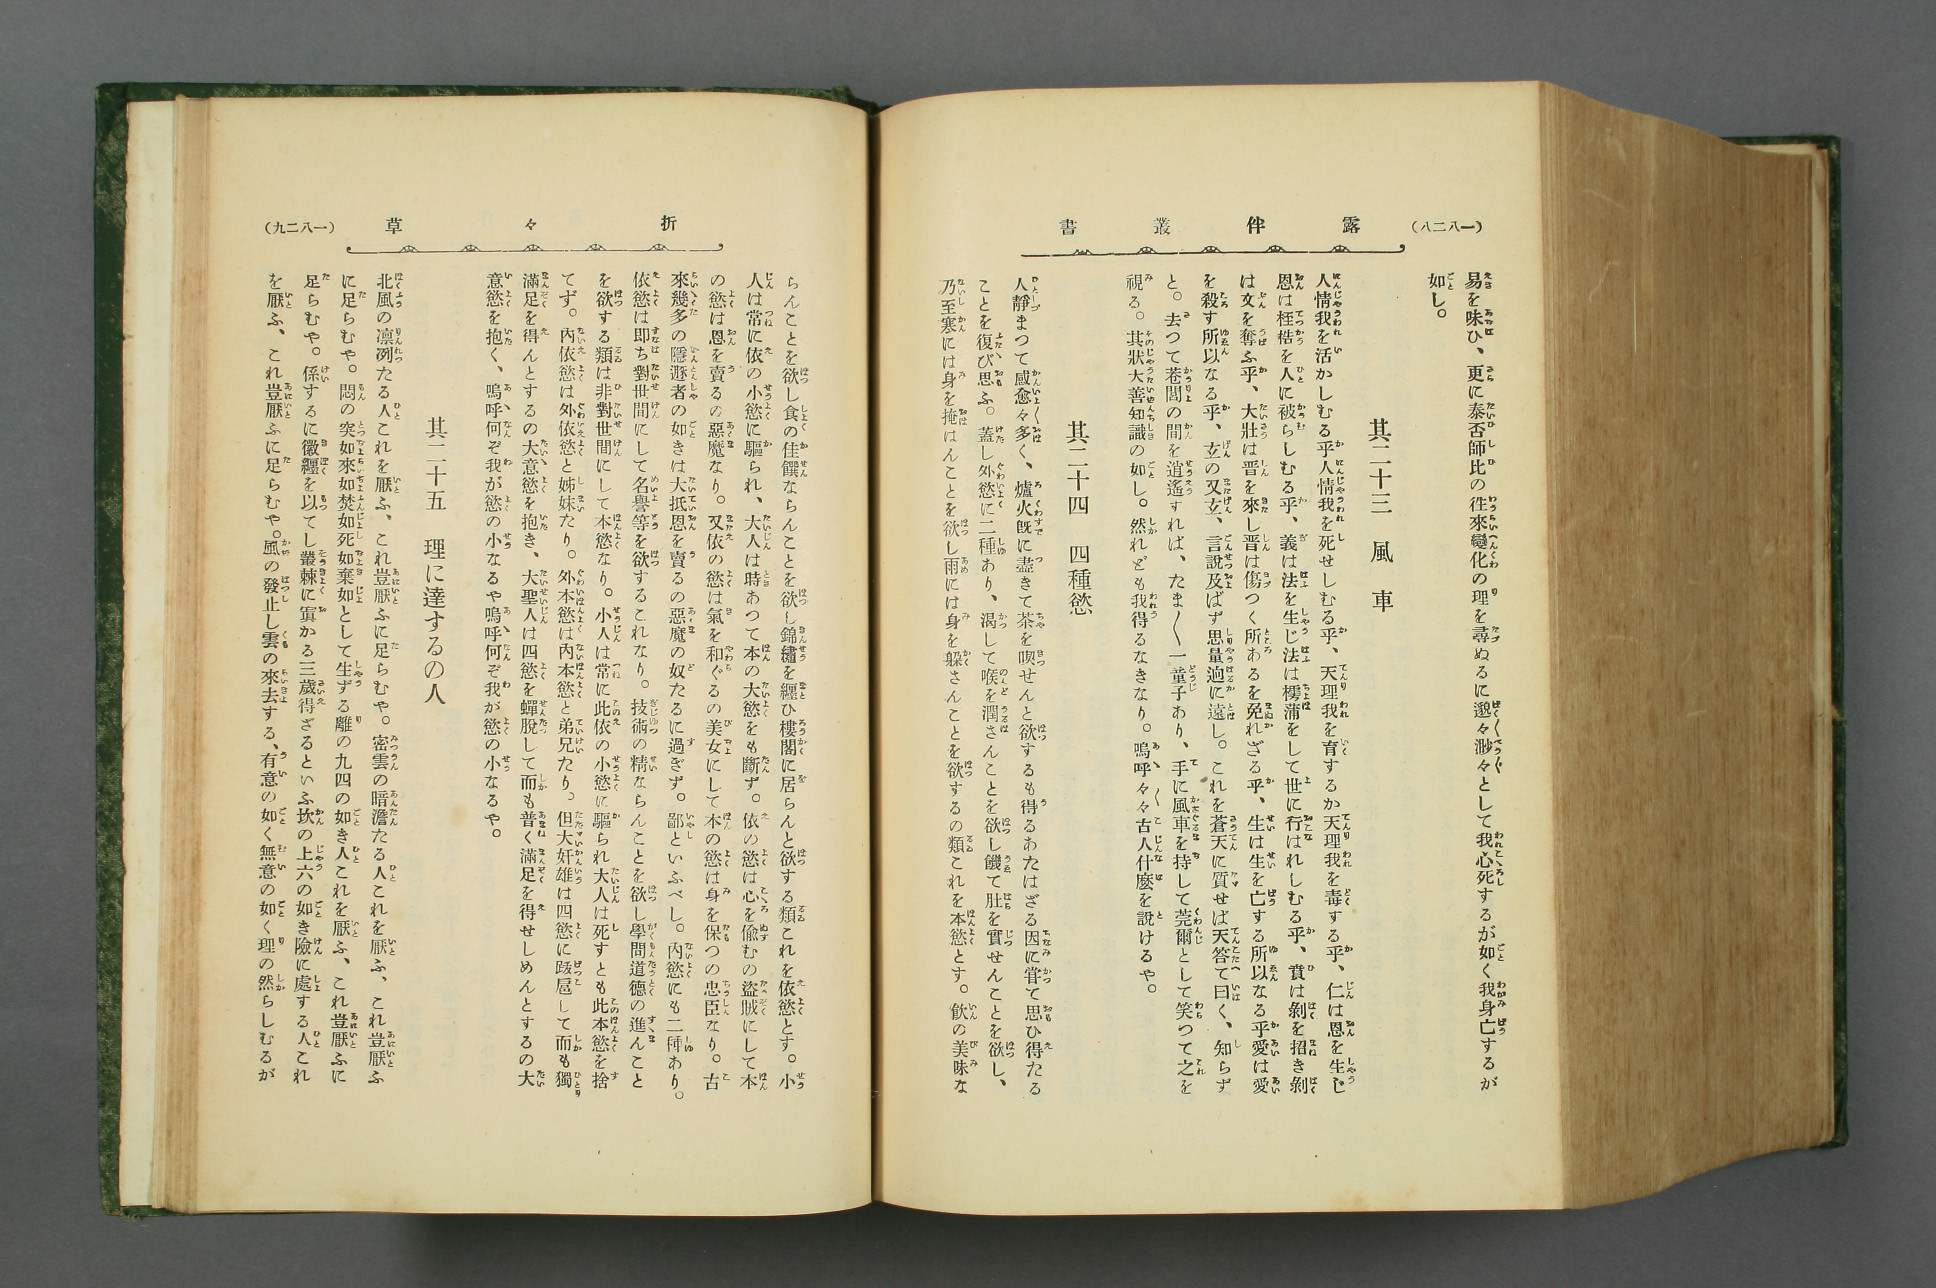 (一八二八)
露伴叢書
易を味ひ、更に泰否師比の徃來變化の理を尋ぬるに邈々渺々として我心死するが如く我身亡するが
如し。
其二十三 風車
人情我を活かしむる乎人情我を死せしむる乎、天理我を育するか天理我を毒する乎、仁は恩を生じ
恩は桎梏を人に被らしむる乎、義は法を生じ法は樗蒲をして世に行はれしむる乎、賁は剝を招き剝
は文を奪ふ乎、大壯は晋を來し晋は傷つく所あるを免れざる乎、生は生を亡する所以なる乎愛は愛
を殺す所以なる乎、玄の又玄、言說及ばず思量逈に遠し。これを蒼天に質せば天答て曰く、知らず
と。去つて巷閭の間を逍遙すれば、たま〱一童子あり、手に風車を持して莞爾として笑つて之を
視る。其狀大善知識の如し。然れども我得るなきなり。嗚呼々々古人什麽を說けるや。
其二十四 四種慾
人靜まつて感愈々多く、爐火既に盡きて茶を喫せんと欲するも得るあたはざる因に甞て思ひ得たる
ことを復び思ふ。蓋し外慾に二種あり、渴して喉を潤さんことを欲し饑て肚を實せんことを欲し、
乃至寒には身を掩はんことを欲し雨には身を躱さんことを欲するの類これを本慾とす。飮の美味な
折々草
(一八二九)
らんことを欲し食の佳饌ならんことを欲し錦繡を纒ひ樓閣に居らんと欲する類これを依慾とす。小
人は常に依の小慾に驅られ、大人は時あつて本の大慾をも斷ず。依の慾は心を偸むの盜賊にして本
の慾は恩を賣るの惡魔なり。又依の慾は氣を和ぐるの美女にして本の慾は身を保つの忠臣なり。古
來幾多の隱遯者の如きは大抵恩を賣るの惡魔の奴たるに過ぎず。鄙といふべし。內慾にも二種あり。
依慾は即ち對世間にして名譽等を欲するこれなり。技術の精ならんことを欲し學問道德の進んこと
を欲する類は非對世間にして本慾なり。小人は常に此依の小慾に驅られ大人は死すとも此本慾を捨
てず。內依慾は外依慾と姊妹たり。外本慾は內本慾と弟兄たり。但大奸雄は四慾に跋扈して而も獨
滿足を得んとするの大意慾を抱き、大聖人は四慾を蟬脫して而も普く滿足を得せしめんとするの大
意慾を抱く、嗚呼何ぞ我が慾の小なるや嗚呼何ぞ我が慾の小なるや。
其二十五 理に達するの人
北風の凛冽たる人これを厭ふ、これ豈厭ふに足らむや。密雲の暗澹たる人これを厭ふ、これ豈厭ふ
に足らむや。悶の突如來如焚如死如棄如として生ずる離の九四の如き人これを厭ふ、これ豈厭ふに
足らむや。係するに徽纒を以てし叢棘に寘かる三歲得ざるといふ坎の上六の如き險に處する人これ
を厭ふ、これ豈厭ふに足らむや。風の發止し雲の來去する、有意の如く無意の如く理の然らしむるが